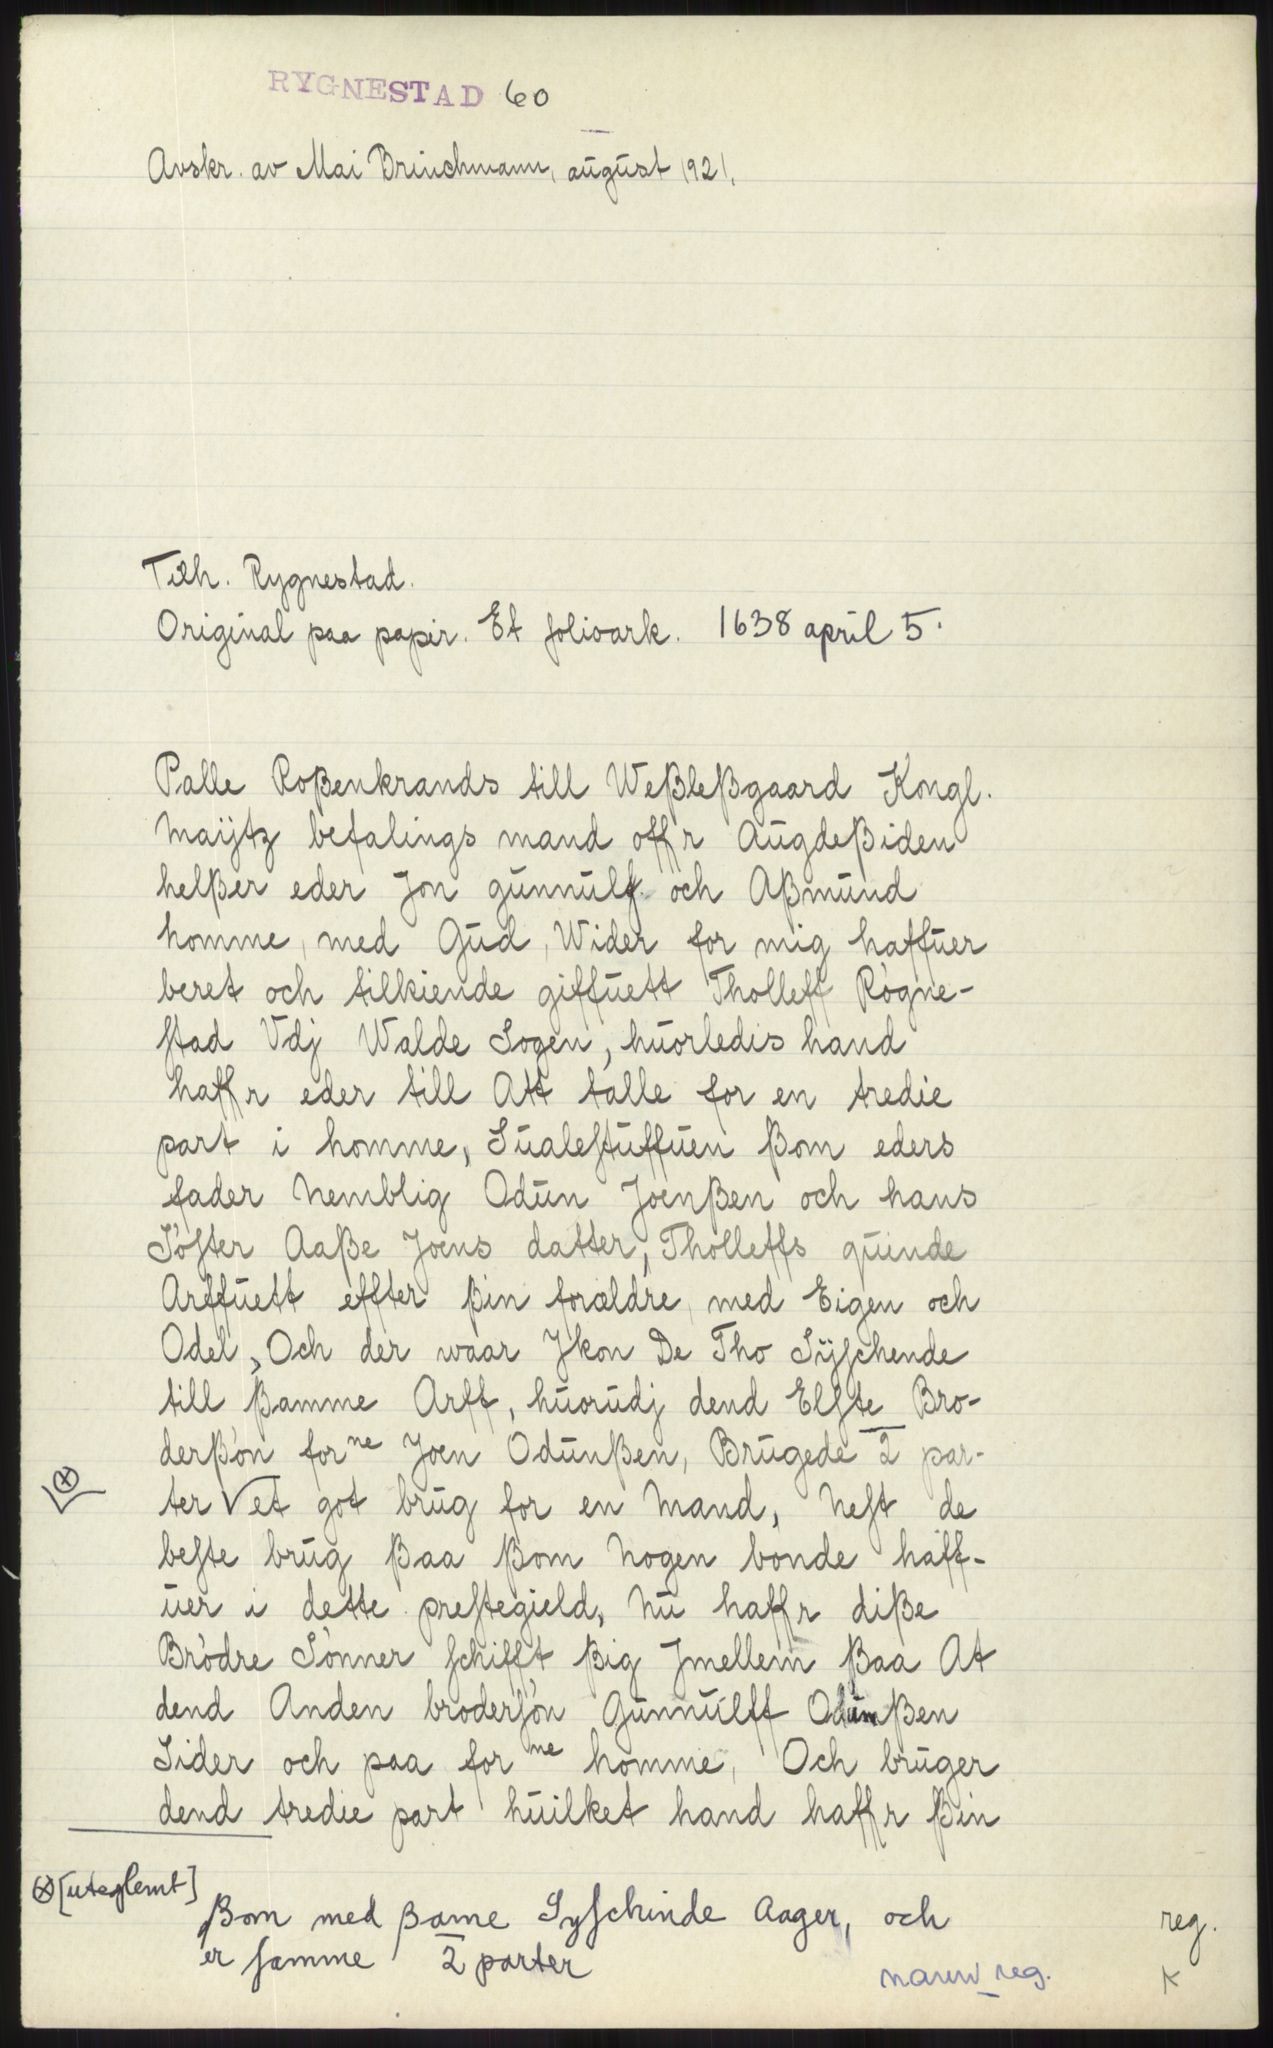 RYGNESTAD 60
Avskr. av Mai Brinchmann, august 1921.
Tilh. Rygnestad.
Original paa papir. Et folioark. 1638 april 5.
Palle Roßenkrands till Weßleßgaard Kongl.
Maÿtz befalings mand offr Augdeßiden
helßer eder Jon gunnulf och Aßmund
homme, med Gud, Wider for mig haffuer
beret och tilkiende giffuett Tholleff Røgne-
stad Vdj Walde Sogen, huorledis hand
haffr eder till Att talle for en tredie
part i homme, Sualestuffuen ßom eders
fader Nemblig Odun Joenßen och hans
Søster Aaße Joens datter, Tholleffs quinde
Arffuett effter ßin forældre, med Eigen och
Odel, Och der waar Jkon De Tho Sÿschende
till ßamme Arff, huorudj dend Elste Bro-
derßøn for ne Joen Odunßen, Brugede 2 par-
⊗
ter √ et got brug for en Mand, Nest de
beste brug ßaa ßom Nogen bonde haff-
uer i dette prestegield, Nu haffr diße
Brødre Sønner schifft ßig Jmellem ßaa At
dend Anden brodersøn Gunnulff Odunßen
Sider och paa for ne homme, Och bruger
dend tredie part huilket hand haffr ßin
⊗ [uteglemt]
ßom med ßame Syschinde Aager, och
er samme 2 parter
reg.
navnereg.
K